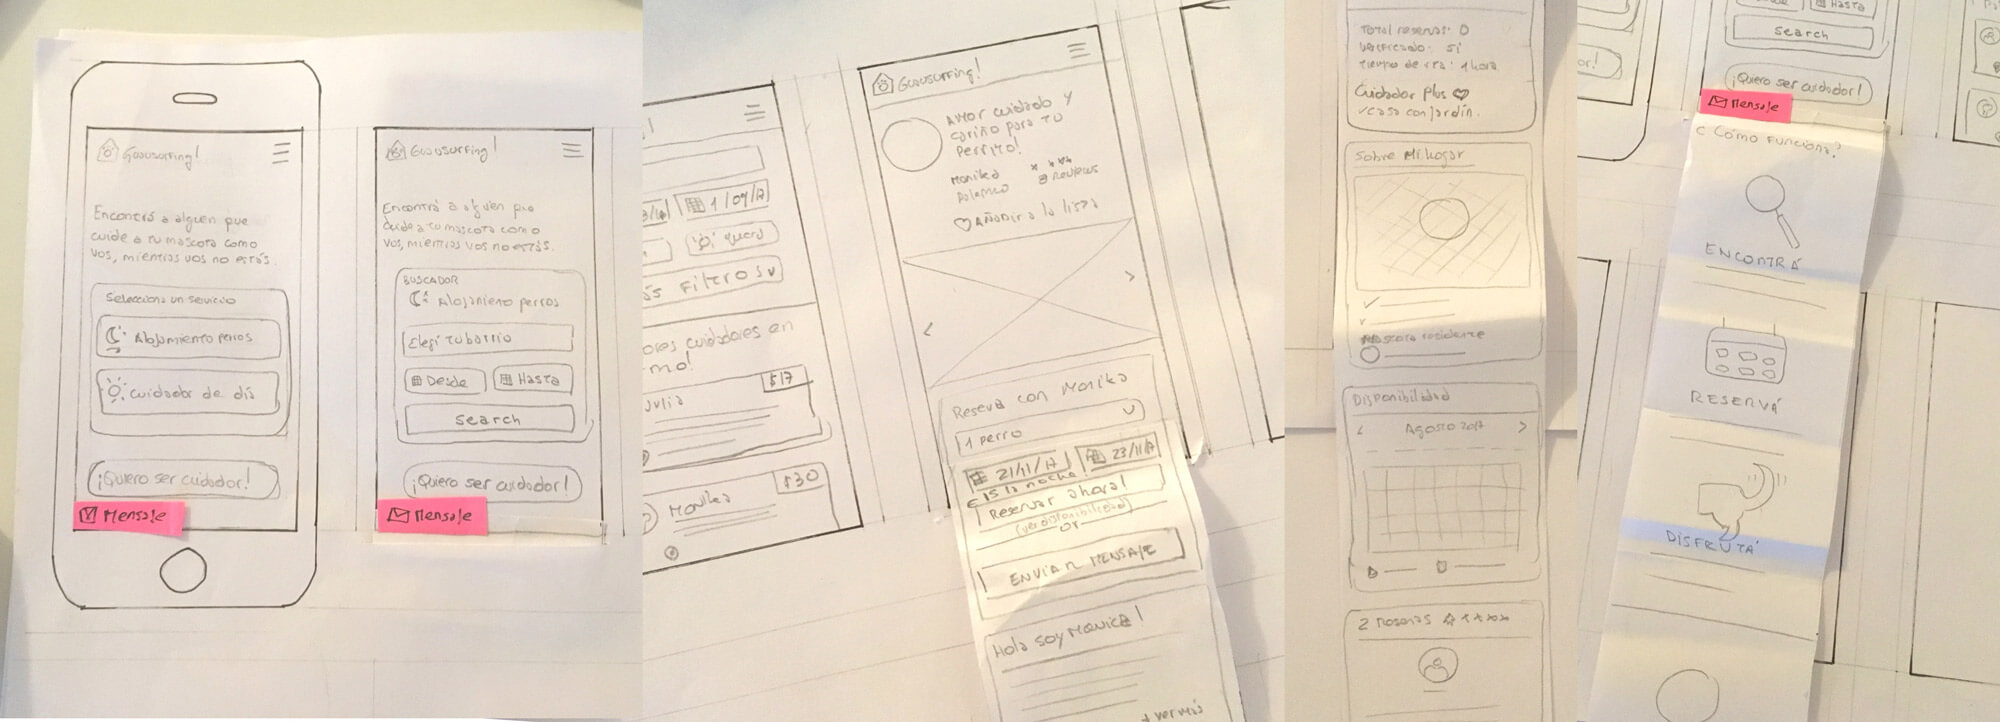 Guausurfing!
Encontrá a alguien que
cuide a tu mascota como
vos, mientras vos no estás.
Selecciona un servicio
Alojamiento perros
cuidador de día
¡Quiero ser cuidador!
Mensaje
Guausurfing!
Encontrá a alguien que
cuide a tu mascota como
vos, mientras vos no estás.
BUSCADOR
Alojamiento perros
Elegí tu barrio
Desde
Hasta
search
¡Quiero ser cuidador!
Mensaje
1/09/17
Filtros
ores cuidadores en
mo!
Julia
$17
Monika
$30
Guausurfing!
Amor cuidado y
cariño para tu
perrito!
Monika
Palermo
8 reviews
Añadir a la lista
Reserva con Monika
1 perro
21/11/17
23/11/17
€15 la noche
Reservar ahora!
(ver disponibilidad)
or
ENVIAR MENSAJE
Hola soy Monica!
+ ver más
Total reservas: 0
Verificado: sí
tiempo de rta: 1 hora
Cuidador Plus
casa con jardín.
Sobre Mi hogar
Mascota residente
Disponibilidad
Agosto 2017
2 reseñas
or!
Hasta
search
¡Quiero ser cuidador!
Mensaje
¿Cómo funciona?
ENCONTRÁ
RESERVÁ
DISFRUTÁ